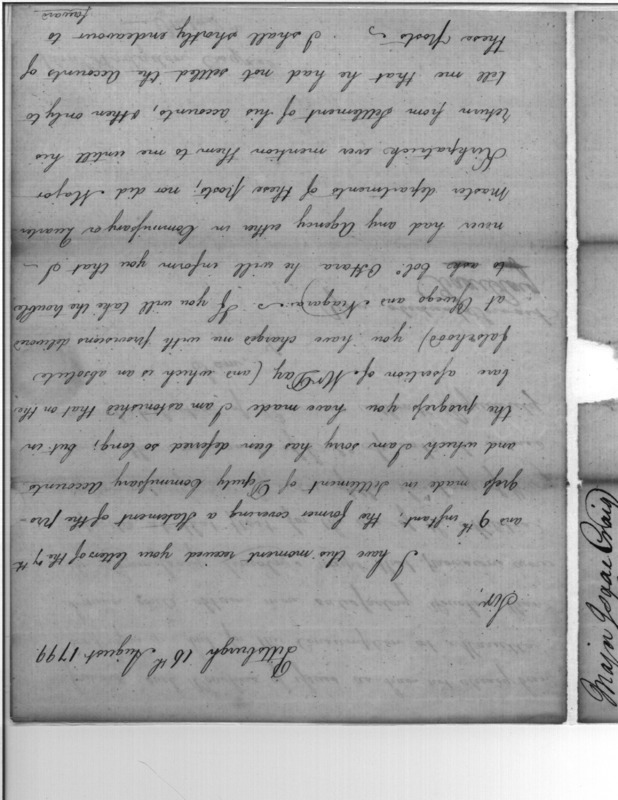 Pittsburgh 16th August 1799
Sir,
I have this moment received your letters of the 7th
and 9th instant, the former covering a Statement of the pro-
gress made in Settlement of Deputy Commissary Accounts
and which I am sorry has been deferred so long; but in
the progress you have made I am astonished that on the
bare assertion of Mr Day (and which is an absolute
falsehood) you have charged me with provisions delivered
at Oswego and Niagara. If you will take the trouble
to ask Col. OHara he will inform you that I
never had any Agency either in Commissary or Quarter
Master departments of these posts, nor did Major
Kirkpatrick ever mention them to me untill his
return from Settlement of his accounts, & then only to
tell me that he had not settled the Accounts of
these posts. I shall shortly endeavour to
forward
Major Isaac Craig